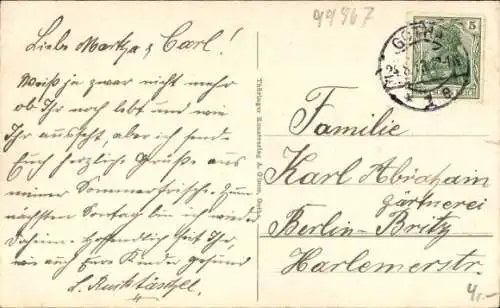 99967
Liebe Martha & Carl!
Weiß ja zwar nicht mehr
ob Ihr noch lebt und wie
Ihr ausseht, aber ich send
Euch herzliche Grüße aus
meiner Sommerfrische. Zum
nächsten Sonntag bin ich wieder
daheim. Hoffentlich seit Ihr,
wie auch Eure Kinder gesund
L.
Thüringer Kunstverlag Gotha.
GOTHA
5
Familie
Karl Abraham
gärtnerei
Berlin-Britz
Harlemerstr.
4,-